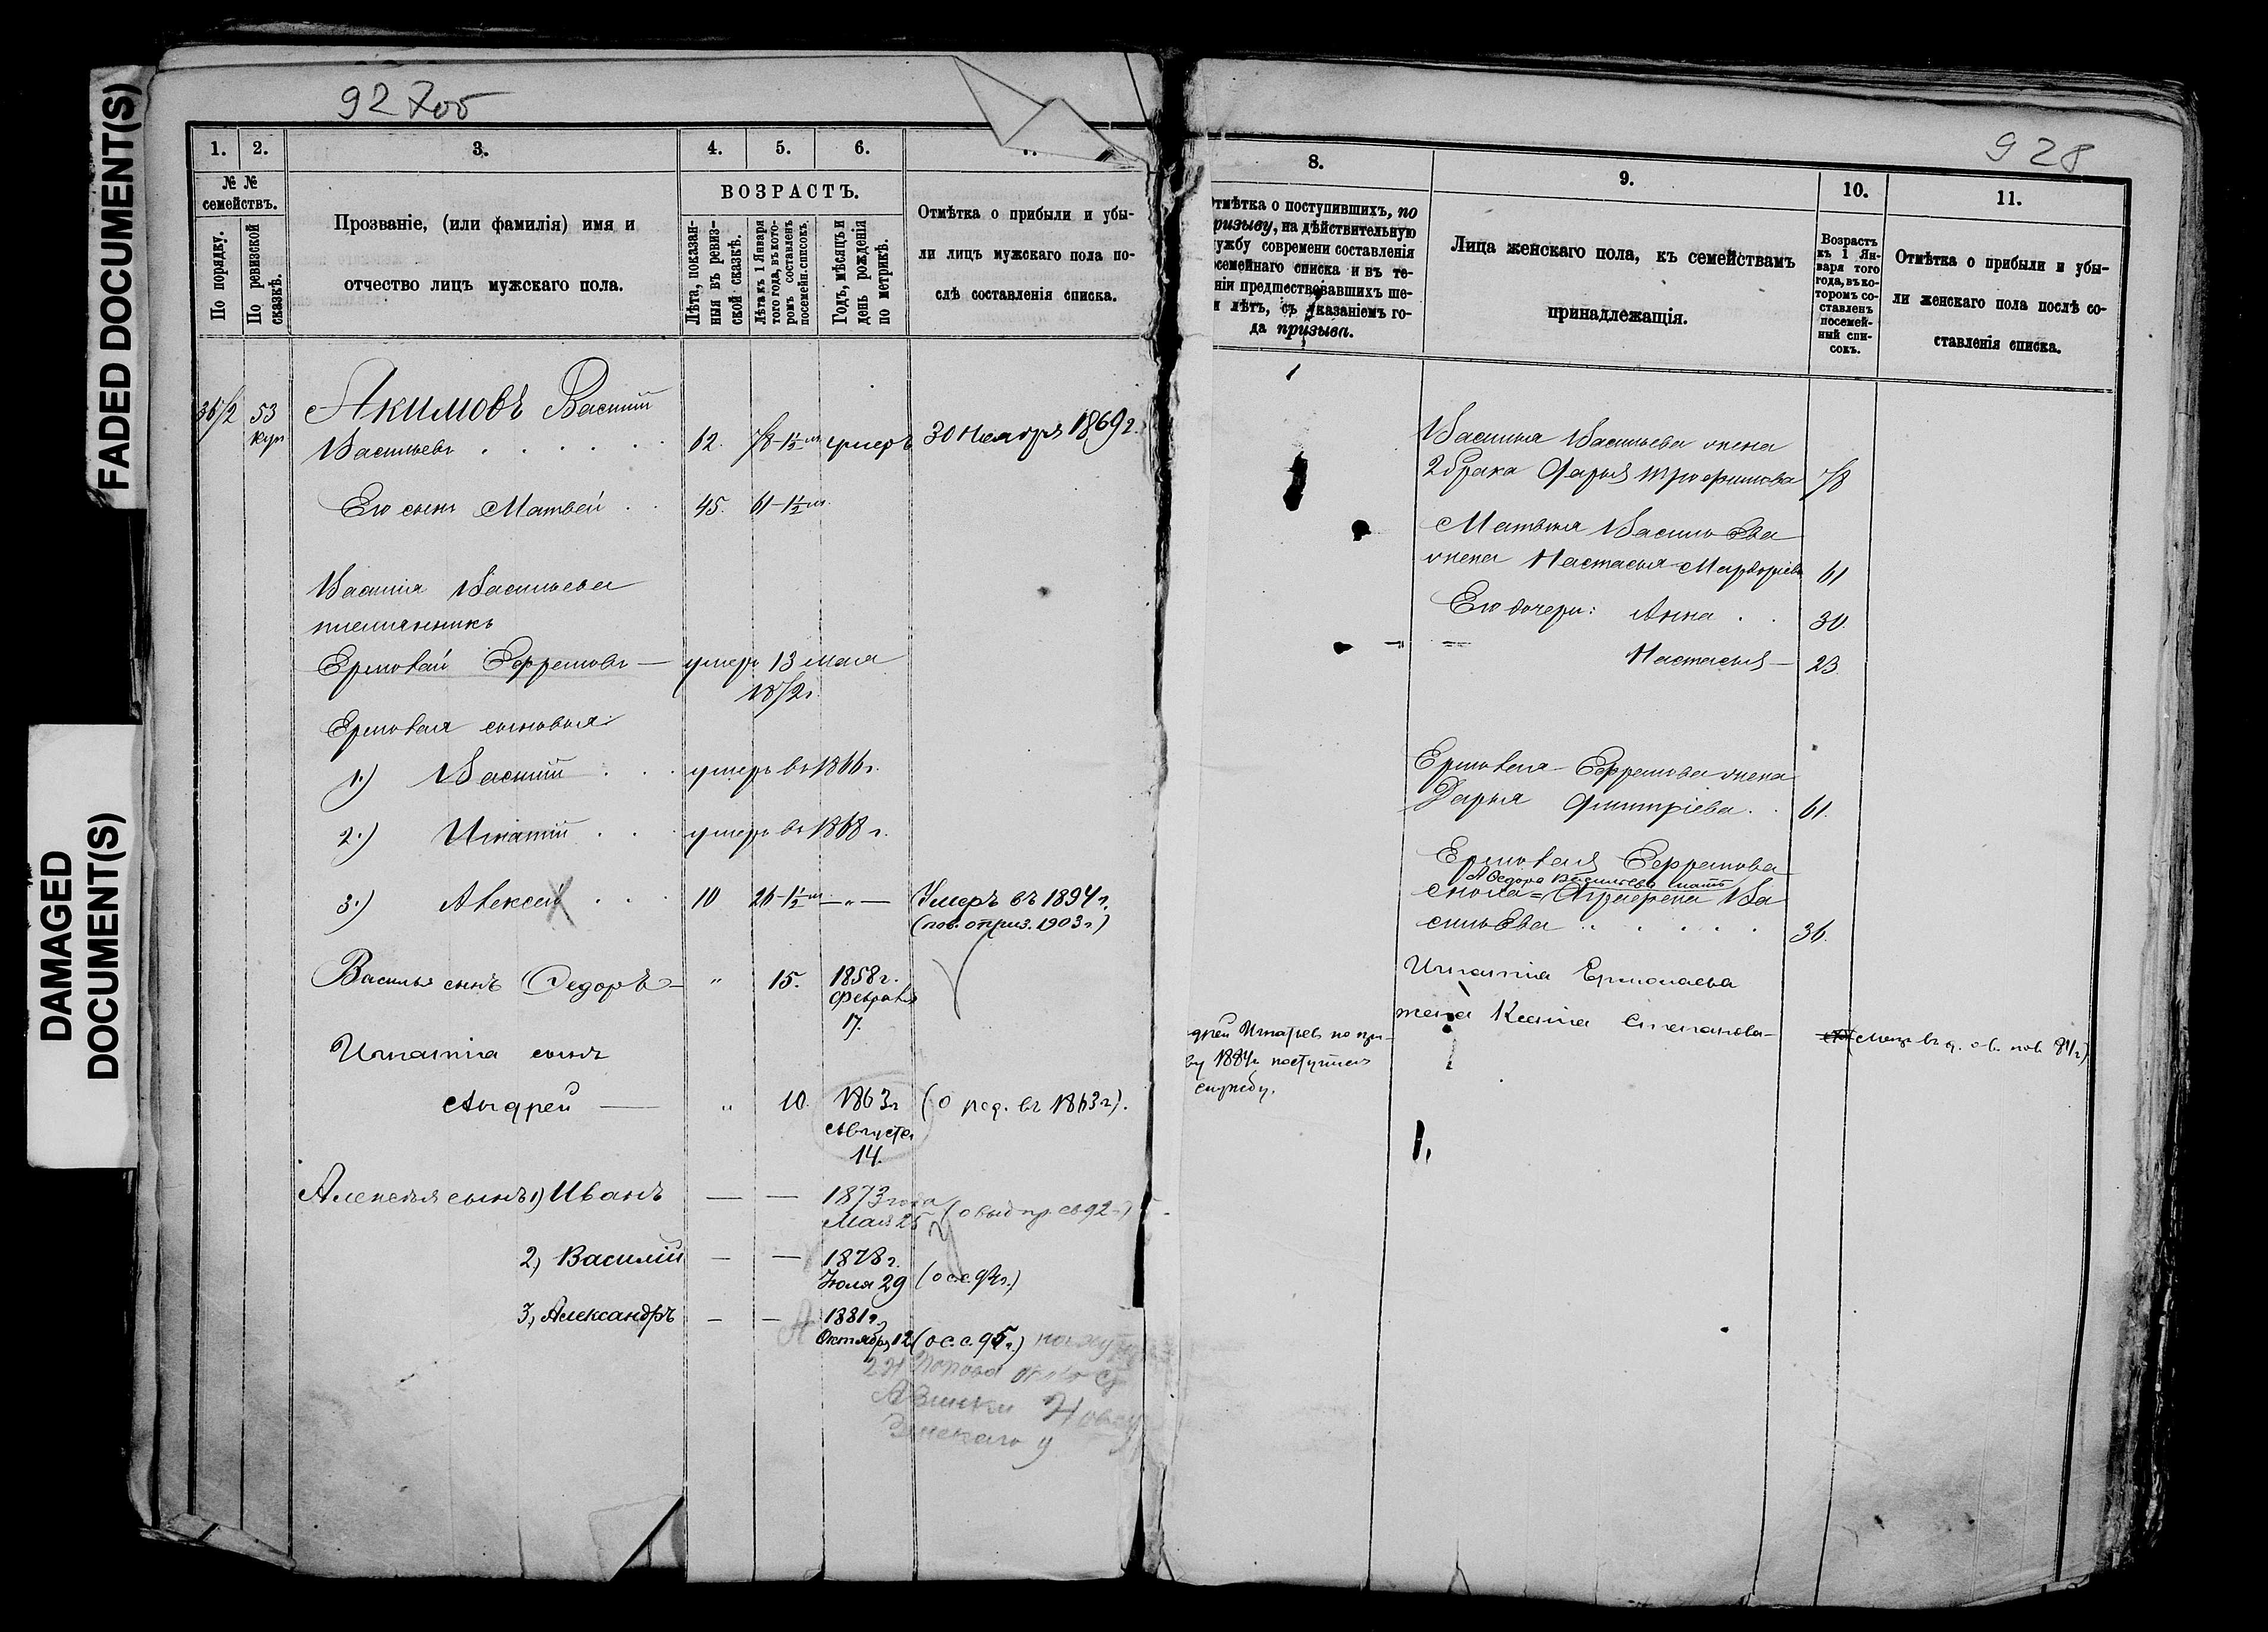 FADED DOCUMENT(S)
DAMAGED
DOCUMENT(S)
92 об
928
1.
2.
3.
4.
5.
6.
№ №
семействъ.
По порядку.
По ревизской
сказкѣ.
Прозваніе, (или фамилія) имя и
отчество лицъ мужскаго пола.
ВОЗРАСТЪ.
Лѣта, показан-
ныя въ ревиз-
ской сказкѣ.
Лѣта къ 1 Января
того года, въ кото-
ромъ составленъ
посемейн. списокъ.
Годъ, мѣсяцъ и
день рожденія
по метрикѣ.
Отмѣтка о прибыли и убы-
ли лицъ мужскаго пола по-
слѣ составленія списка.
53
Акимовъ Василій
Васильевъ
62. 78-1½ умеръ 30 Ноября 1869 г.
Его сынъ Матвей
45. 61-1½
Василія Васильева
племянникъ
Ермолай Ефремовъ — умеръ 13 мая
1872 г.
Ермолая сыновья:
1.) Василій умеръ въ 1866 г.
2.) Игнатій умеръ въ 1868 г.
3.) Алексей 10 26-1½ — „ — Умеръ въ 1894 г.
(пов. о приз. 1903 г.)
Василья сынъ Федоръ — „ 15. 1858 г.
Февраля
17.
Игнатія сынъ
Андрей — „ 10. 1863 г. (о род. въ 1863 г.).
Августа
14.
Алексѣя сынъ 1) Иванъ — — 1873 года
Мая 25
2) Василій — — 1878 г.
Іюля 29
3, Александръ — — 1881 г.
Октября 12 (о с. с. 95 г.)
8.
9.
10.
11.
тмѣтка о поступившихъ, по
ризыву, на дѣйствительную
ужбу современи составленія
семейнаго списка и въ те-
ніи предшествовавшихъ ше-
и лѣтъ, съ указаніемъ го-
да призыва.
Лица женскаго пола, къ семействамъ
принадлежащія.
Возрастъ
къ 1 Ян-
варя того
года, въ ко-
торомъ со-
ставленъ
посемей-
ный спи-
сокъ.
Отмѣтка о прибыли и убы-
ли женскаго пола послѣ со-
ставленія списка.
Василья Васильева жена
2 брака Дарья Трофимова 78
Матвея Василь Ева
жена Настасья 61
Его дочери: Анна 30.
Настасья — 23.
Ермолая Ефремова жена
Дарья Дмитріева 61.
Ермолая Ефремова
Федора Васильева мать
сноха = Аграфена Ва
силь Ева 36.
Игнатія Ермолаева
жена Ксенія Степанова —
дрей Игнатьев по при-
ву 1884 г. поступилъ
службу.